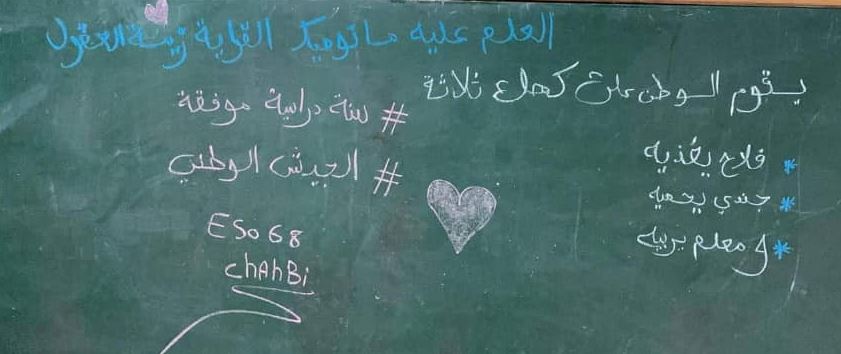 العلم عليه ما نوميكا القراية زينة العقول
يقوم الوطن على كهلع ثلاثة
* فلاح يغذيه
* جندي يحميه
* و معلم يربيه
# سنة دراسية موفقة
# الجيش الوطني
ESO 68
chAhBi